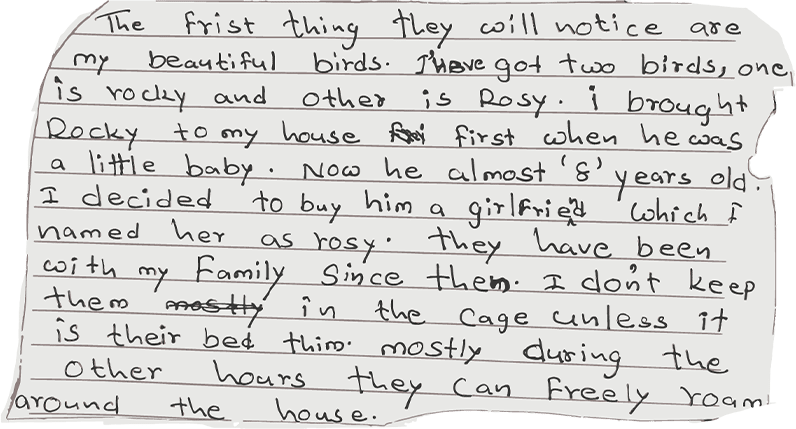 The frist thing they will notice are
my beautiful birds. I'have got two birds, one
is rocky and other is Rosy. i brought
Rocky to my house first when he was
a little baby. Now he almost '8' years old.
I decided to buy him a girlfriend which I
named her as rosy. they have been
with my Family Since then. I don't keep
them mostly in the cage unless it
is their bed thim. mostly during the
other hours they can freely roam
around the house.